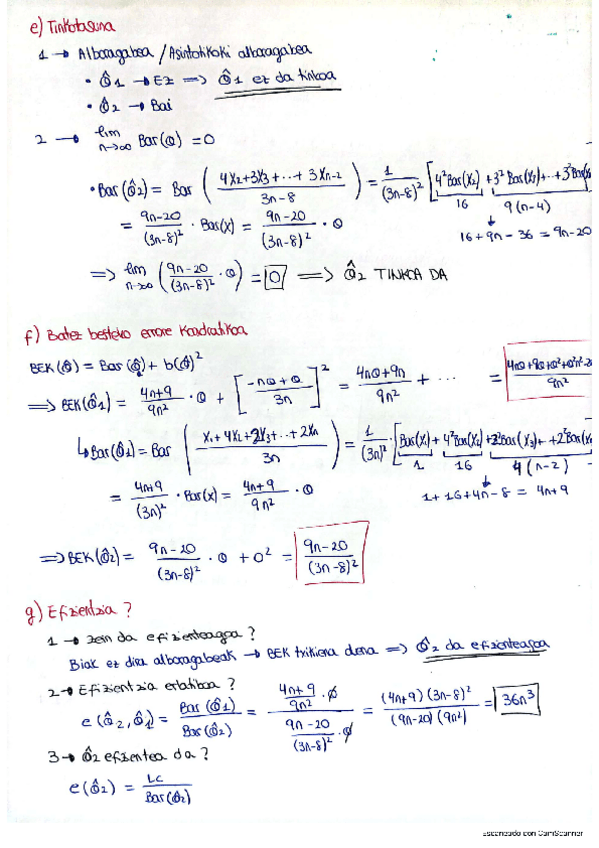 e) Tinkotasuna
1 → Alboragabea / Asintotikoki alboragabea
• Θ̂1 → Ez ⟹ Θ̂1 ez da tinkoa
• Θ̂2 → Bai
2 → lim n→∞ Bar(Θ) = 0
• Bar(Θ̂2) = Bar ( (4X2+3X3+...+3Xn-2) / (3n-8) ) = 1/(3n-8)² [4²Bar(X2) + 3²Bar(X3) + ... + 3²Bar(X
16 9(n-4)
= (9n-20)/(3n-8)² · Bar(x) = (9n-20)/(3n-8)² · Θ
16 + 9n - 36 = 9n-20
⟹ lim n→∞ ( (9n-20)/(3n-8)² · Θ ) = 0 ⟹ Θ̂2 TINKOA DA
f) Batez besteko errore koadratikoa
BEK(Θ̂) = Bar(Θ̂) + b(Θ̂)²
⟹ BEK(Θ̂1) = (4n+9)/9n² · Θ + [ (-nΘ+Θ)/3n ]² = (4nΘ+9n)/9n² + ... = (4nΘ+9Θ+Θ²+Θ²n²-2 / 9n²
↳ Bar(Θ̂1) = Bar ( (X1+4X2+2X3+...+2Xn) / 3n ) = 1/(3n)² [Bar(X1) + 4²Bar(X2) + 2²Bar(X3) + ... + 2²Bar(X
1 16 4(n-2)
= (4n+9)/(3n)² · Bar(x) = (4n+9)/9n² · Θ
1+16+4n-8 = 4n+9
⟹ BEK(Θ̂2) = (9n-20)/(3n-8)² · Θ + 0² = (9n-20)/(3n-8)²
g) Efizientzia ?
1 → Zein da efizienteagoa ?
Biak ez dira alboragabeak → BEK txikiena duena ⟹ Θ̂2 da efizienteagoa
2 → Efizientzia erlatiboa ?
e(Θ̂2, Θ̂1) = Bar(Θ̂1)/Bar(Θ̂2) = ((4n+9)/9n² · Θ) / ((9n-20)/(3n-8)² · Θ) = (4n+9)(3n-8)² / (9n-20)(9n²) = 36n³
3 → Θ̂2 efizientea da ?
e(Θ̂2) = LC / Bar(Θ̂2)
Escaneado con CamScanner